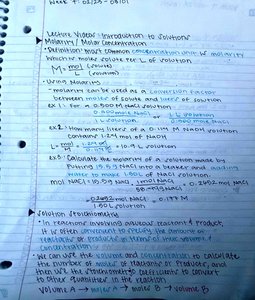 Week 7: 02/25 - 03/01
Lecture Video: Introduction to Solutions
Molarity / Molar Concentration
• Definition: most common concentration unit is molarity
which is moles solute per L of solution
M = mol (solute)
L (solution)
• Using Molarity
- molarity can be used as a conversion factor
between moles of solute and liters of solution
ex 1: For a 0.500 M NaCl solution
0.500 mole NaCl 1 L solution
1 L solution 0.500 mole NaCl
ex 2: How many liters of a 0.114 M NaOH solution
contains 1.24 mol of NaOH
L = mol = 1.24 mol = 10.9 L solution
M 0.114
ex 3: Calculate the molarity of a solution made by
putting 15.5 g NaCl into a beaker and adding
water to make 1.50 L of NaCl solution.
mol NaCl = 15.5 g NaCl 1 mol NaCl = 0.2652 mol NaCl
NaCl
0.2652 mol NaCl = 0.177 M
1.50 L solution
Solution Stoichiometry
• In reactions involving aqueous reactants & product,
it is often convenient to specify the amount of
reactants or products in terms of their volume &
concentration
• We can use the volume and concentration to calculate
the number of moles of reactant or product, and
then use the stoichiometric coefficients to convert
to other quantities in the reaction
Volume A → moles A → moles B → Volume B